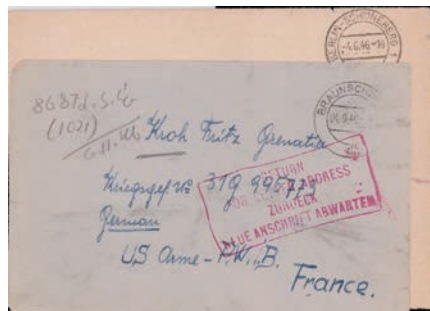 BERLIN-SCHÖNEBERG 1
-4.6.46-
BRAUNSCH
8687
(1021)
Kroh Fritz Grenadier
Kriegsgef № 31G 995773
German
US Arme - P.W.i.B.
France.
RETURN
FOR ADDRESS
ZURUECK
NEUE ANSCHRIFT ABWARTEN